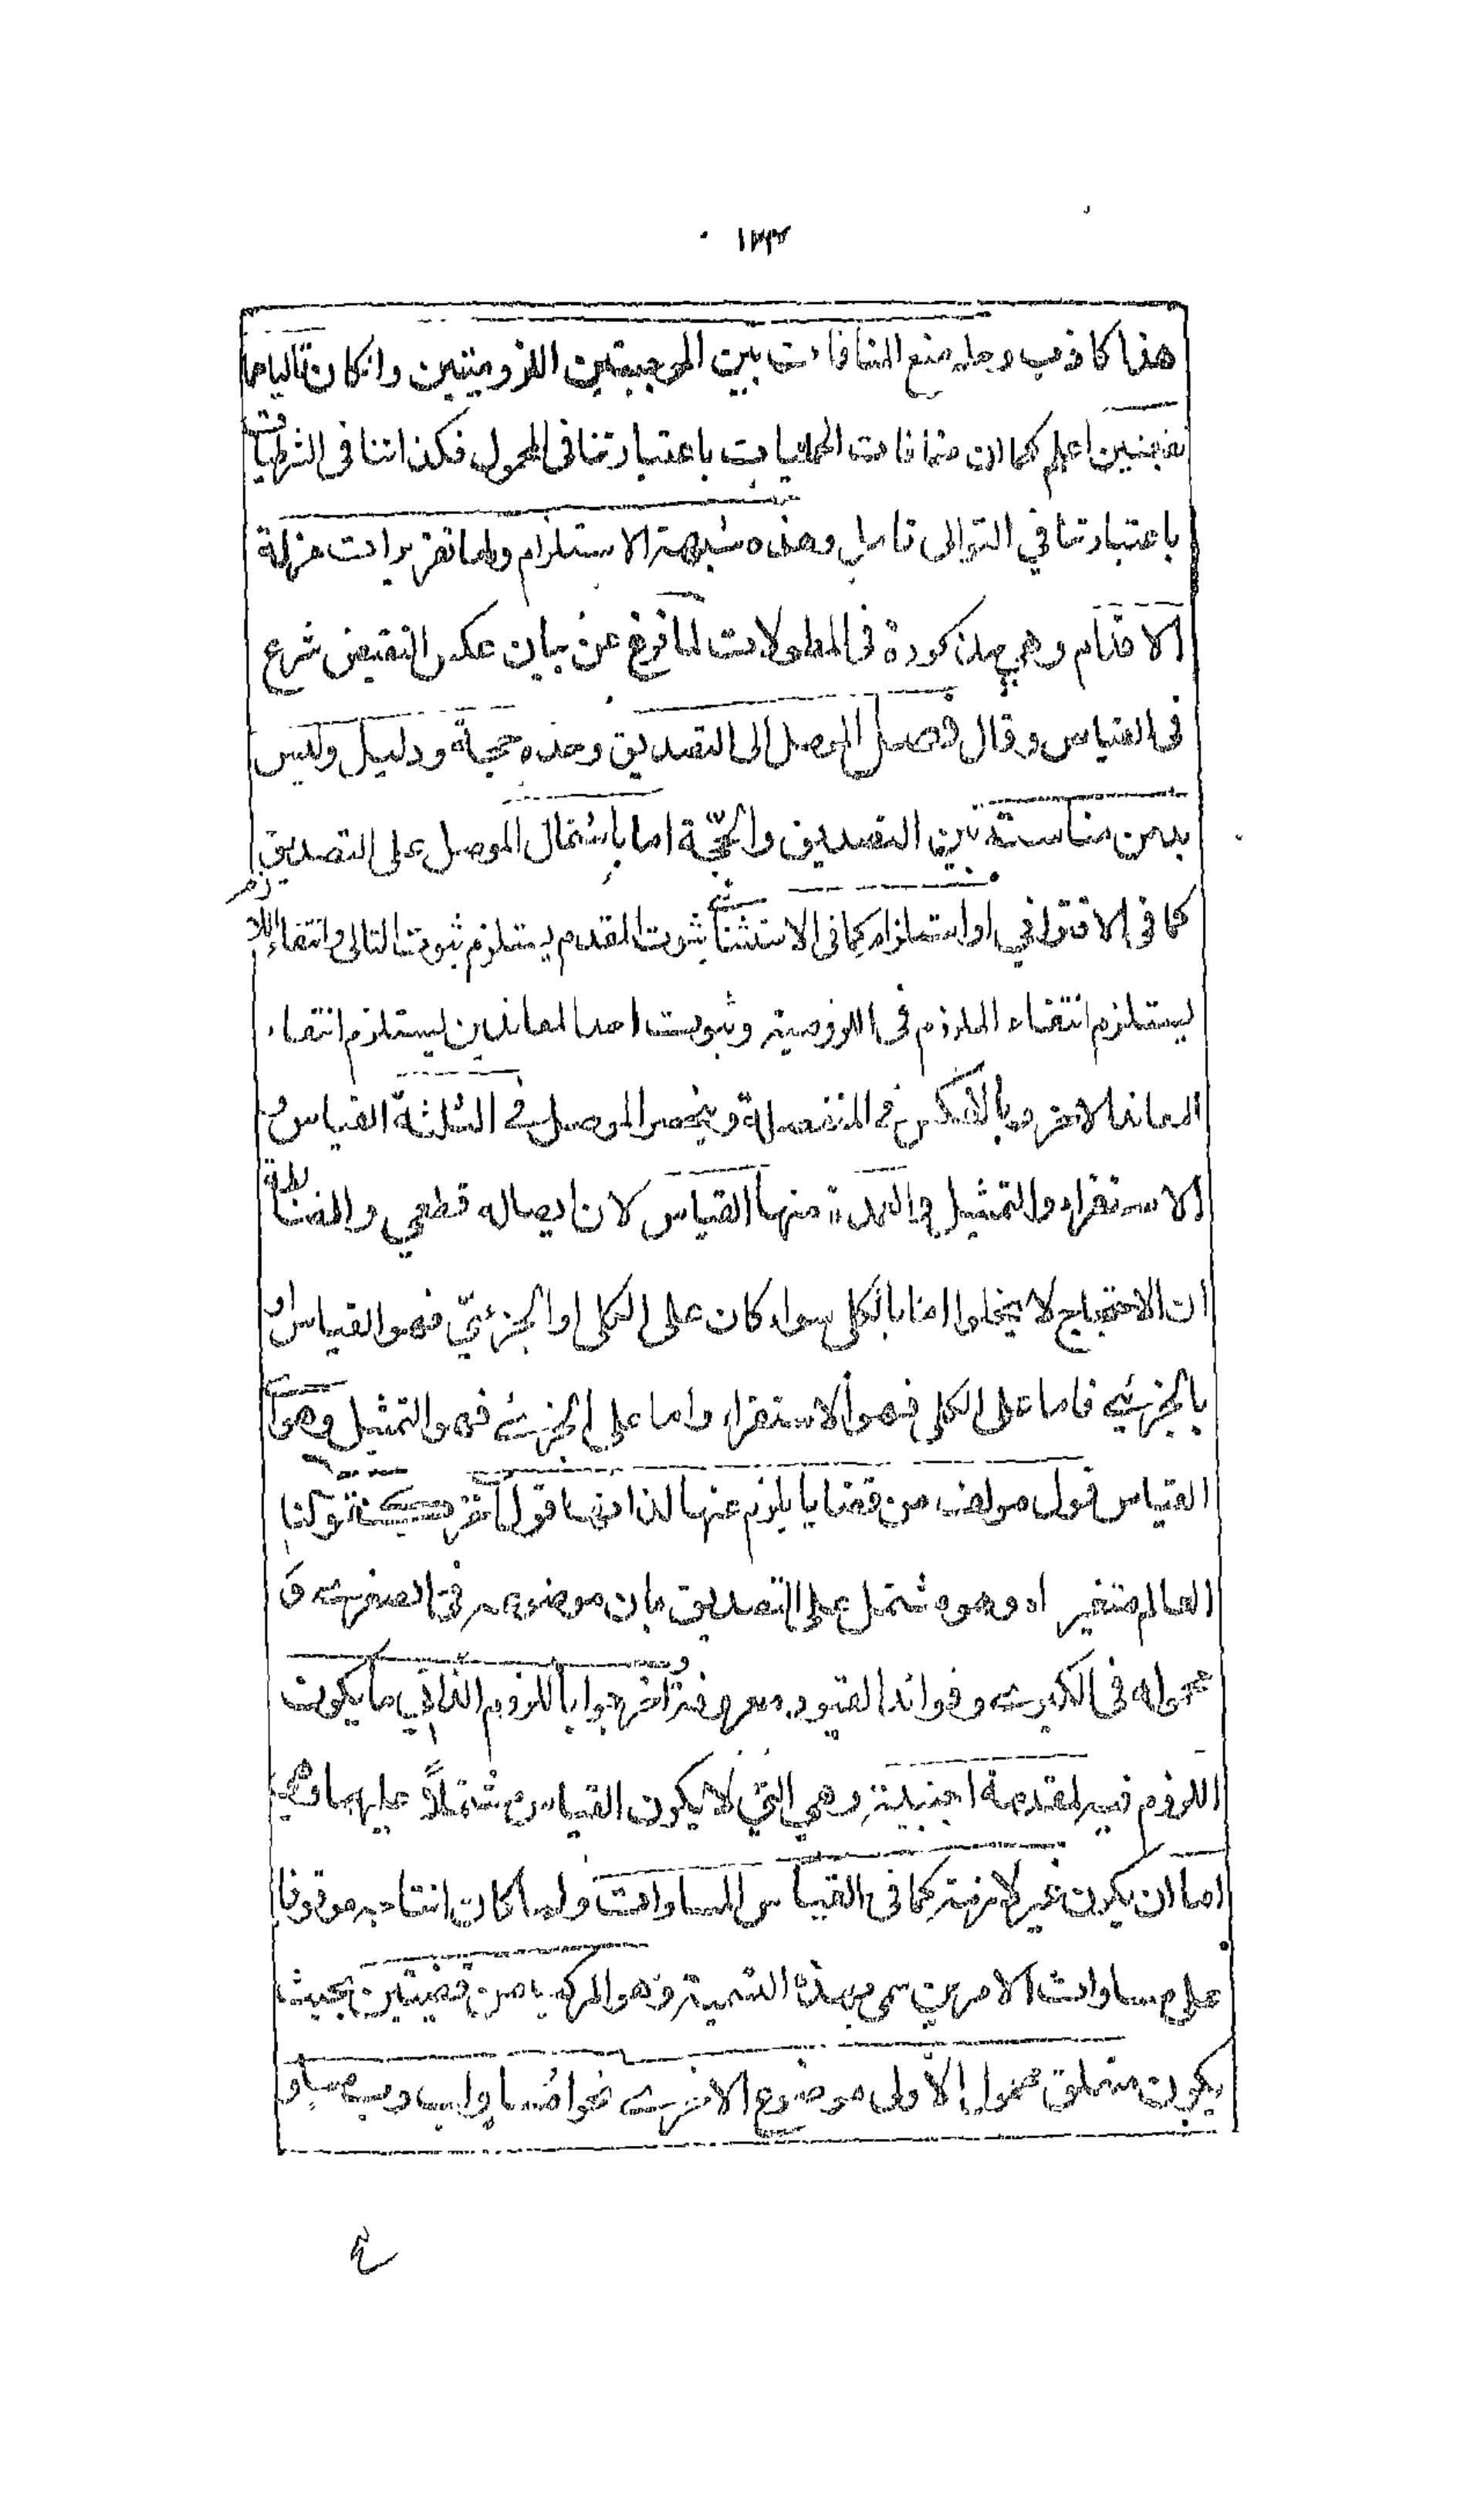 ١٣٣
هذا كاذب وحله منع المنافات بين الموجبتين اللزوميتين وانكان تالياهما
نقيضين اعلم كما ان منافات الحمليات باعتبار تنافى المحمول فكذا تنافى الشرطيات
باعتبار تنافي التوالى تامل وهذه شبهة الاستلزام ولها تقريرات مزلة
الاقدام وهي مذكورة فى المطولات لما فرغ عن بيان عكس النقيض شرع
فى القياس وقال فصل الموصل الى التصديق وحده حجة ودليل وليس
بد من مناسبة بين التصديق والحجّة اما باشتمال الموصل على التصديق
كما فى الاقتراني او استلزام كما فى الاستثنائي ثبوت المقدم يستلزم ثبوت التالى وانتفاء اللازم
يستلزم انتفاء الملزوم فى اللزومية وثبوت احد المعاندين يستلزم انتفاء
المعاند الاخر وبالعكس في المنفصلة وينحصر الموصل في الثلثة القياس و
الاستقراء والتمثيل والعمدة منها القياس لان ايصاله قطعي والضابطة
ان الاحتجاج لا يخلوا اما بالكلى سواء كان على الكلى او الجزئيّ فهو القياس او
بالجزئي فاما على الكلى فهو الاستقراء واما على الجزئي فهو التمثيل وهو
القياس قول مولف من قضايا يلزم عنها لذاتها قول آخر كقولنا
العالم متغير اه وهو مشتمل على التصديق بان موضوعه فى الصغرى و
محموله فى الكبرى وفوائد القيود معروفة واخرجوا باللزوم الذاتي ما يكون
اللزوم فيه لمقدمة اجنبية وهي التي لا يكون القياس مشتملاً عليها وهى
اما ان يكون غير لازمة كما فى القياس المساوات ولما كان انتاجه موقوفا
على مساوات الامرين سمى بهذا التسمية وهو المركب من قضيتين بحيث
يكون متعلق محمول الاولى موضوع الاخرى نحو ا مساو لب وب مساو